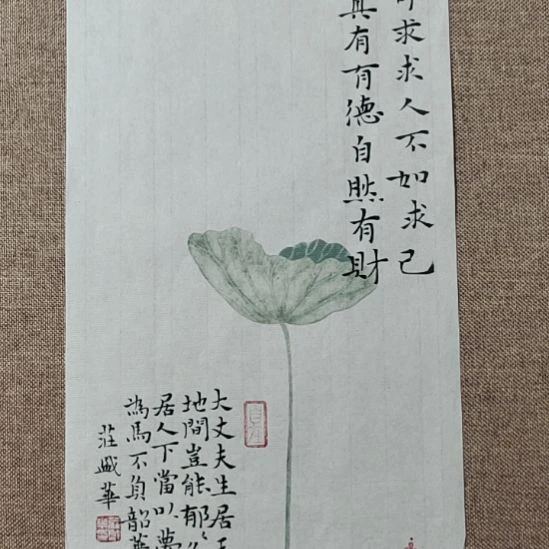 求求人不如求己
真有有德自然有財
大丈夫生居天
地間豈能郁々久
居人下當以夢
為馬不負韶華
莊盛華